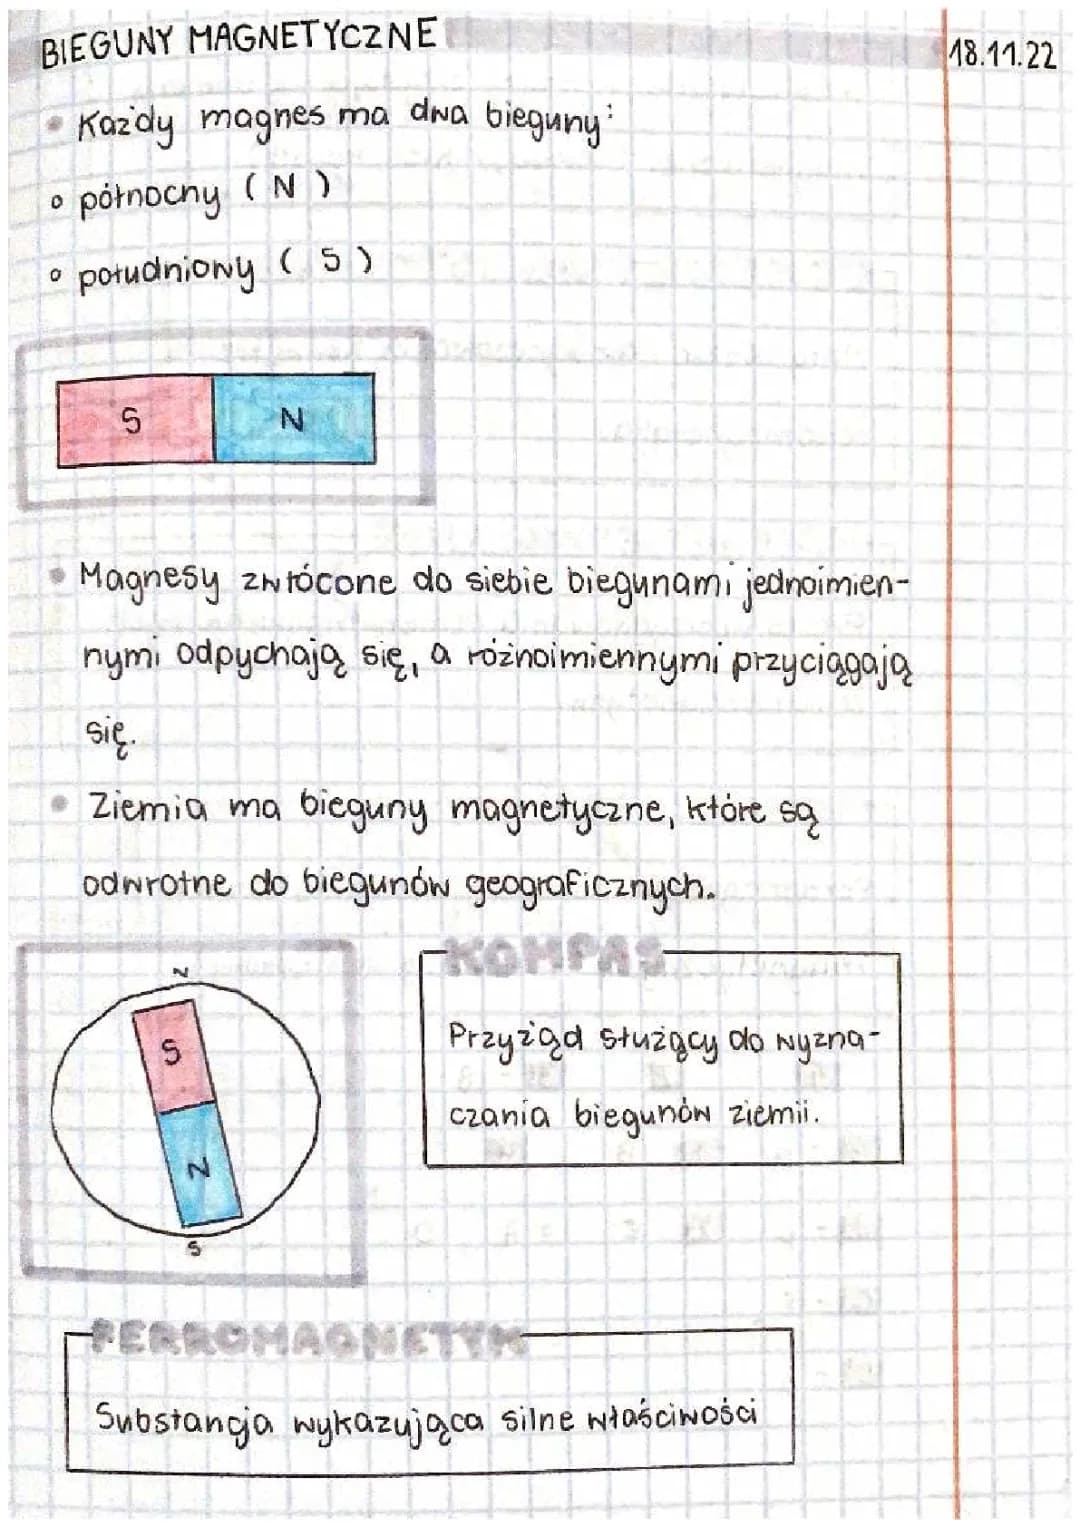 BIEGUNY MAGNETYCZNE
18.11.22
• Każdy magnes ma dwa bieguny:
o północny (N)
o południowy (S)
S N
• Magnesy zwrócone do siebie biegunami jednoimien-
nymi odpychają się, a różnoimiennymi przyciągają
się.
• Ziemia ma bieguny magnetyczne, które są
odwrotne do biegunów geograficznych.
N
S
N
S
KOMPAS
Przyrząd służący do wyzna-
czania biegunów ziemii.
FERROMAGNETYK
Substancja wykazująca silne właściwości